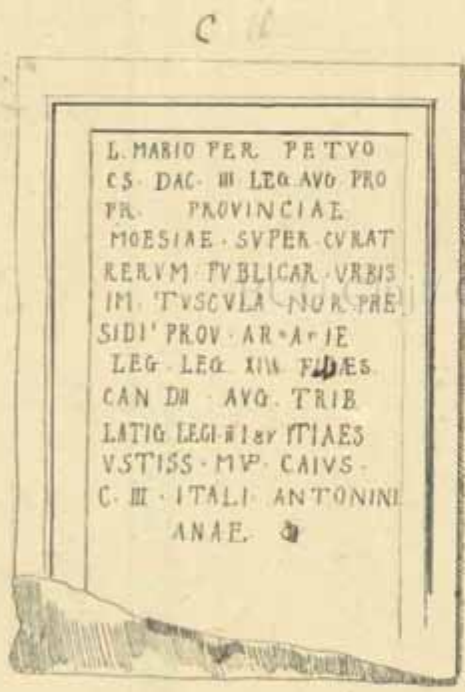 C
L. MARIO PER PETVO
CS. DAC. III LEG. AVG PRO
PR. PROVINCIAE
MOESIAE · SVPER · CVRAT
RERVM · PVBLICAR · VRBIS
IM. TVSCVLA NOR PRE
SIDI' PROV · AR
LEG. LEG. XIII
CAN DII · AVG. TRIB
LATIG LEGI
VSTISS · CAIVS ·
C · III · ITALI · ANTONINI
ANAE